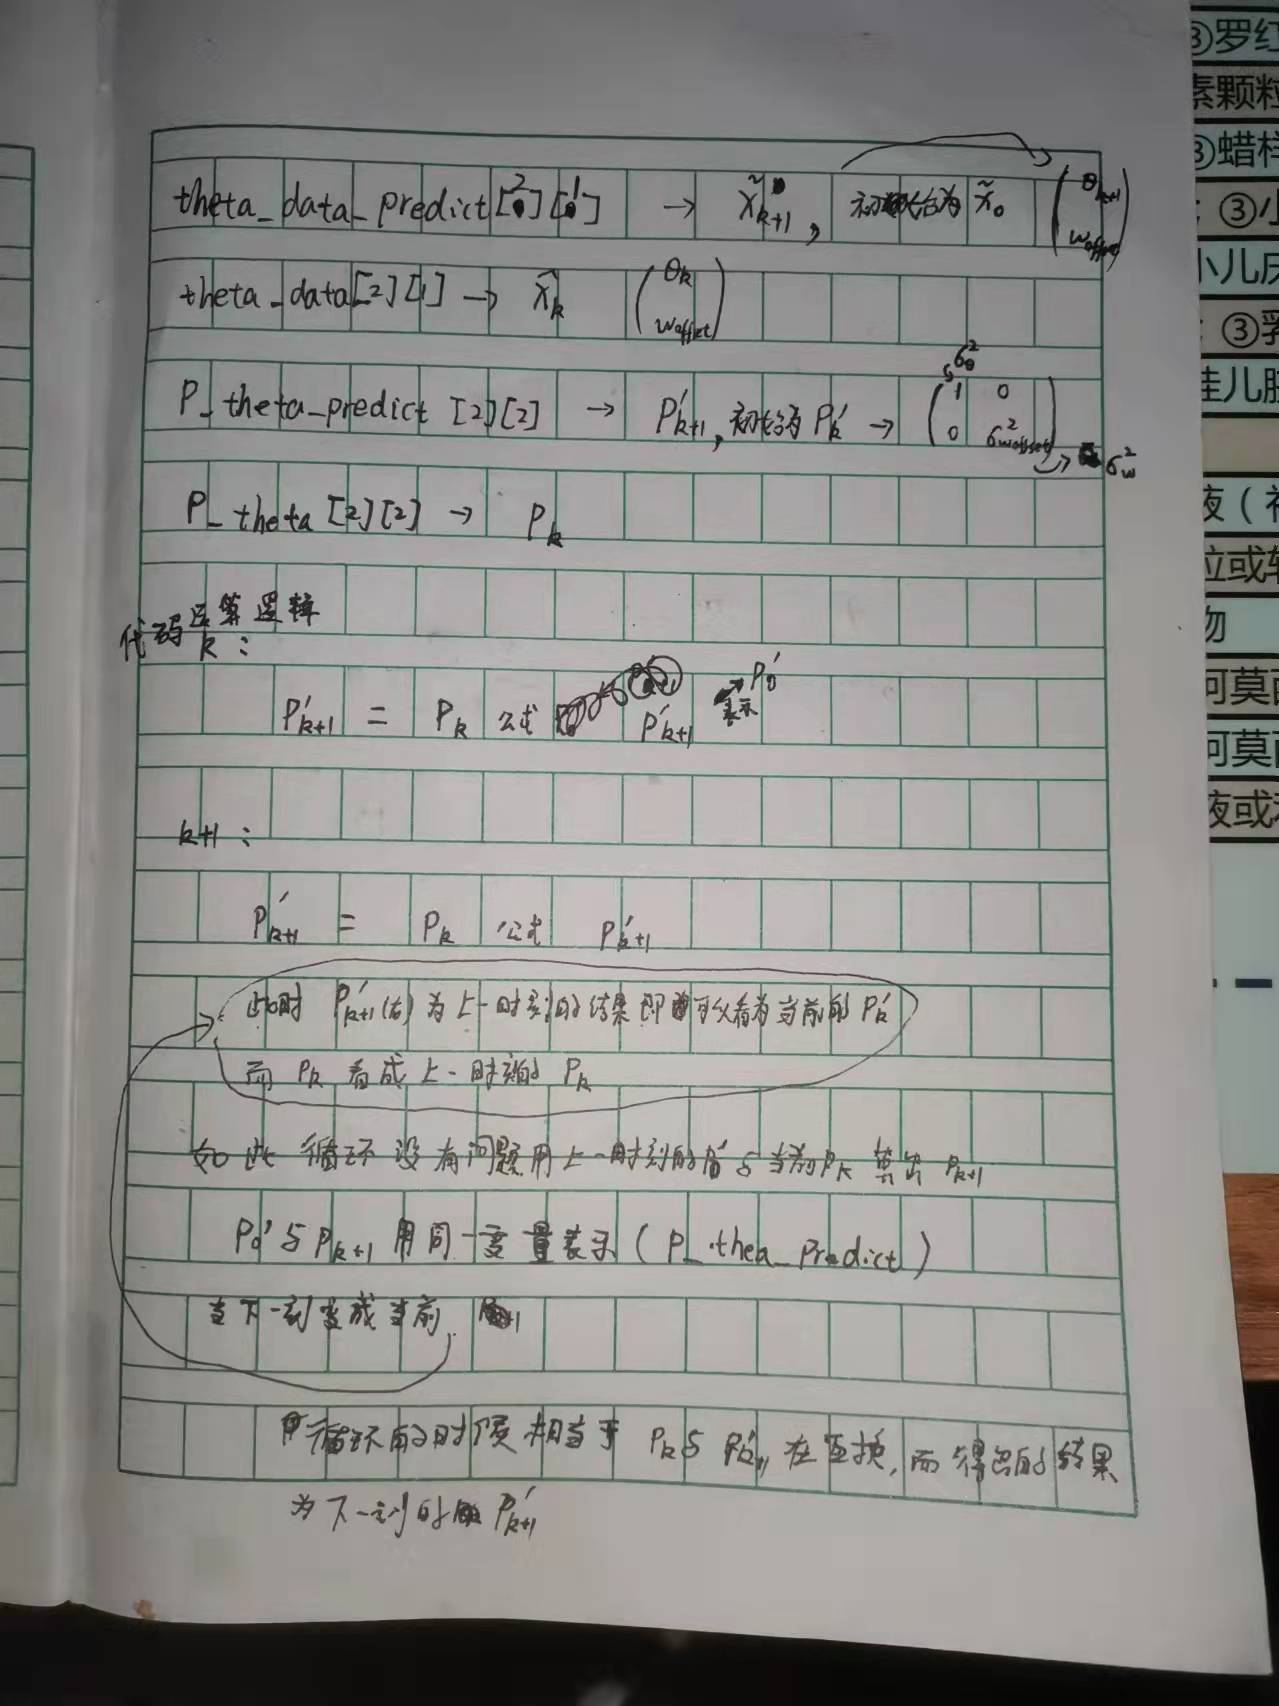 theta_data_predict[2][1] → x̃ₖ₊₁, 初始为 x̃₀ (θₖ₊₁ w_offset)
theta_data[2][1] → x̂ₖ (θₖ w_offset)
σ_θ²
P_theta_predict [2][2] → P'ₖ₊₁, 初始为 P'ₖ → (1 0 0 σ²w_offset) → σ_w²
P_theta [2][2] → Pₖ
代码运算逻辑
k:
P'ₖ₊₁ = Pₖ 公式 P'ₖ₊₁ 表示 P₀'
k+1:
P'ₖ₊₁ = Pₖ 公式 P'ₖ₊₁
此时 P'ₖ₊₁(右) 为上一时刻的结果即可以看为当前的 P'ₖ
而 Pₖ 看成上一时刻的 Pₖ
如此循环没有问题用上一时刻的 与当前Pₖ 算出 Pₖ₊₁
P₀' 与 Pₖ₊₁ 用同一变量表示 (P_thea_predict)
当下一刻变成当前
循环的时候相当于 Pₖ与 P'ₖ₊₁ 在互换, 而得出的结果
为下一刻的 P'ₖ₊₁
③罗红
素颗粒
③蜡样
; ③小
小儿庆
; ③乳
娃儿脏
液(衤
位或转
物
阿莫西
阿莫西
液或